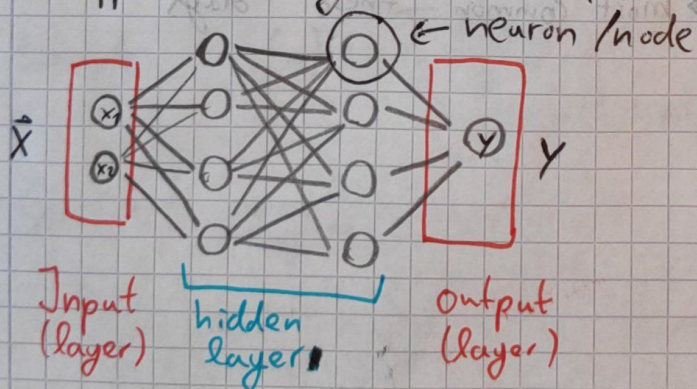 ← neuron/node
x1
x2
X⃗
y
Y
Input
(layer)
hidden
layer
output
(layer)